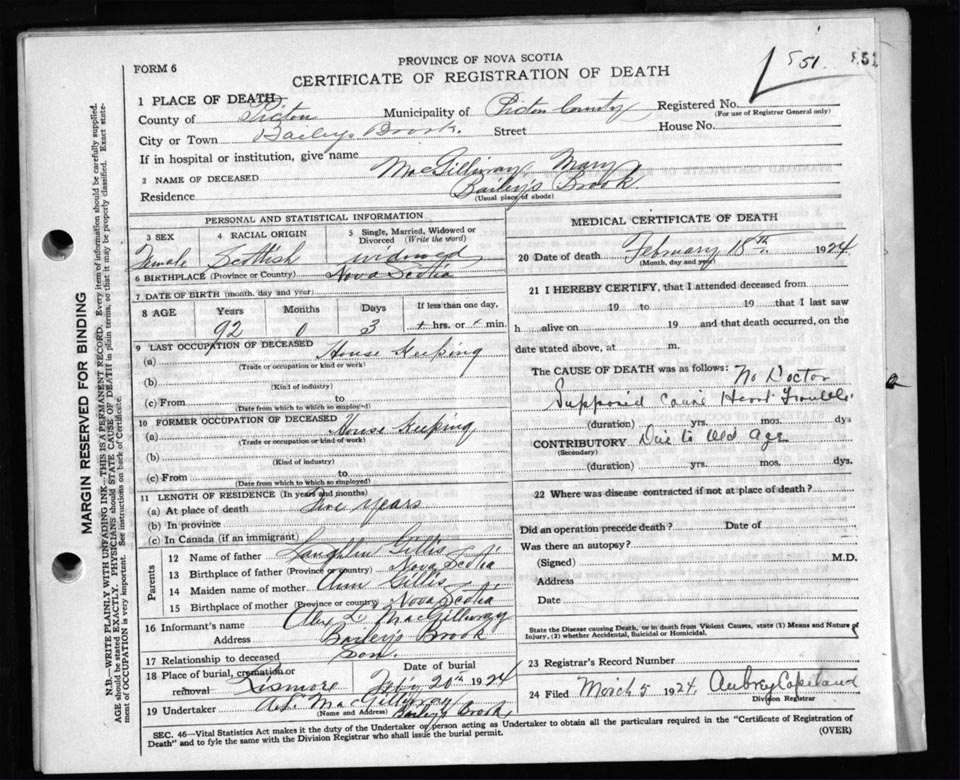 551
551
FORM 6
PROVINCE OF NOVA SCOTIA
CERTIFICATE OF REGISTRATION OF DEATH
1 PLACE OF DEATH—
County of Pictou Municipality of Pictou County Registered No.
(For use of Registrar General only)
City or Town Baileys Brook. Street House No.
If in hospital or institution, give name
2 NAME OF DECEASED MacGillivray, Mary
Residence Bailey's Brook
(Usual place of abode)
PERSONAL AND STATISTICAL INFORMATION
3 SEX 4 RACIAL ORIGIN 5 Single, Married, Widowed or Divorced (Write the word)
Female Scottish widowed
6 BIRTHPLACE (Province or Country) Nova Scotia
7 DATE OF BIRTH (month, day and year)
8 AGE Years Months Days If less than one day,
92 0 3 hrs. or min.
9 LAST OCCUPATION OF DECEASED
(a) House Keeping
(Trade or occupation or kind or work)
(b)
(Kind of industry)
(c) From to
(Date from which to which so employed)
10 FORMER OCCUPATION OF DECEASED
(a) House Keeping
(Trade or occupation or kind of work)
(b)
(Kind of industry)
(c) From to
(Date from which to which so employed)
11 LENGTH OF RESIDENCE (In years and months)
(a) At place of death years
(b) In province
(c) In Canada (if an immigrant)
Parents
12 Name of father Laughlin Gillis
13 Birthplace of father (Province or country) Nova Scotia
14 Maiden name of mother Ann Gillis
15 Birthplace of mother (Province or country) Nova Scotia
16 Informant's name Alex L. MacGillivray
Address Bailey's Brook
17 Relationship to deceased Son.
18 Place of burial, cremation or removal Lismore Date of burial Feb'y 20th 1924
19 Undertaker MacGillivray
(Name and Address) Bailey's Brook
MEDICAL CERTIFICATE OF DEATH
20 Date of death February 18th 1924.
(Month, day and year)
21 I HEREBY CERTIFY, that I attended deceased from
19 to 19 that I last saw
h alive on 19 and that death occurred, on the
date stated above, at m.
The CAUSE OF DEATH was as follows: No Doctor
Supposed cause Heart Trouble
(duration) yrs. mos. dys
CONTRIBUTORY Due to old age
(Secondary)
(duration) yrs. mos. dys.
22 Where was disease contracted if not at place of death?
Did an operation precede death? Date of
Was there an autopsy?
(Signed) M.D.
Address
Date
State the Disease causing Death, or in death from Violent Causes, state (1) Means and Nature of
Injury, (2) whether Accidental, Suicidal or Homicidal.
23 Registrar's Record Number
24 Filed March 5 1924. Aubrey Copeland
Division Registrar
SEC. 46—Vital Statistics Act makes it the duty of the Undertaker or person acting as Undertaker to obtain all the particulars required in the "Certificate of Registration of
Death" and to fyle the same with the Division Registrar who shall issue the burial permit. (OVER)
MARGIN RESERVED FOR BINDING
N.B.—WRITE PLAINLY WITH UNFADING INK—THIS IS A PERMANENT RECORD. Every item of information should be carefully supplied.
AGE should be stated EXACTLY. PHYSICIANS should STATE CAUSE OF DEATH in plain terms, so that it may be properly classified. Exact state-
ment of OCCUPATION is very important. See instructions on back of Certificate.